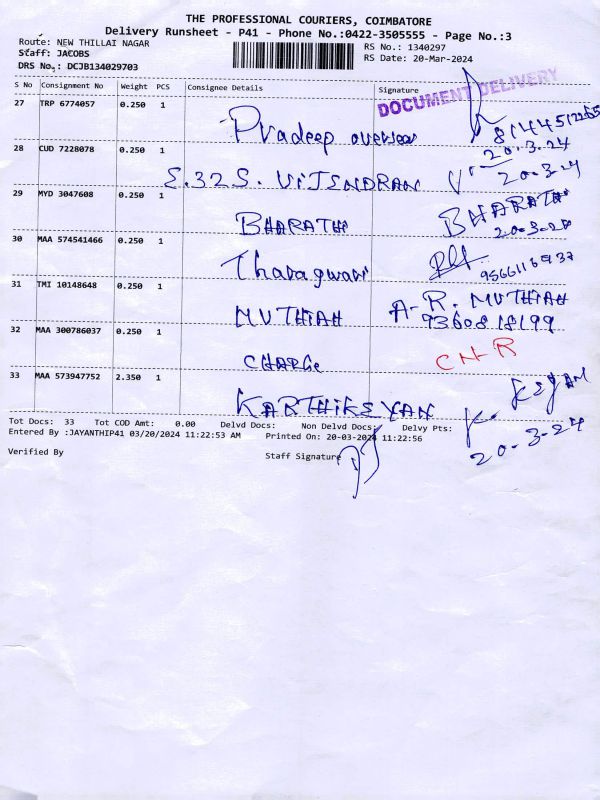 THE PROFESSIONAL COURIERS, COIMBATORE
Delivery Runsheet - P41 - Phone No.:0422-3505555 - Page No.:3
Route: NEW THILLAI NAGAR
RS No.: 1340297
Staff: JACOBS
RS Date: 20-Mar-2024
DRS No.: DCJB134029703
S No Consignment No Weight PCS Consignee Details Signature
DOCUMENT DELIVERY
27 TRP 6774057 0.250 1
Pradeep overseas
8144512265
20.3.24
28 CUD 7228078 0.250 1
S. VIJENDRAN
20-3-24
29 MYD 3047608 0.250 1
BHARATH BHARATH
20-3-20
30 MAA 574541466 0.250 1
9566116937
31 TMI 10148648 0.250 1
MUTHIAH A-R. MUTHIAH
9360818199
32 MAA 300786037 0.250 1
CHARGE CNR
33 MAA 573947752 2.350 1
KARTHIKEYAN K. KEYAN
20-3-24
Tot Docs: 33 Tot COD Amt: 0.00 Delvd Docs: Non Delvd Docs: Delvy Pts:
Entered By :JAYANTHIP41 03/20/2024 11:22:53 AM Printed On: 20-03-2024 11:22:56
Verified By Staff Signature